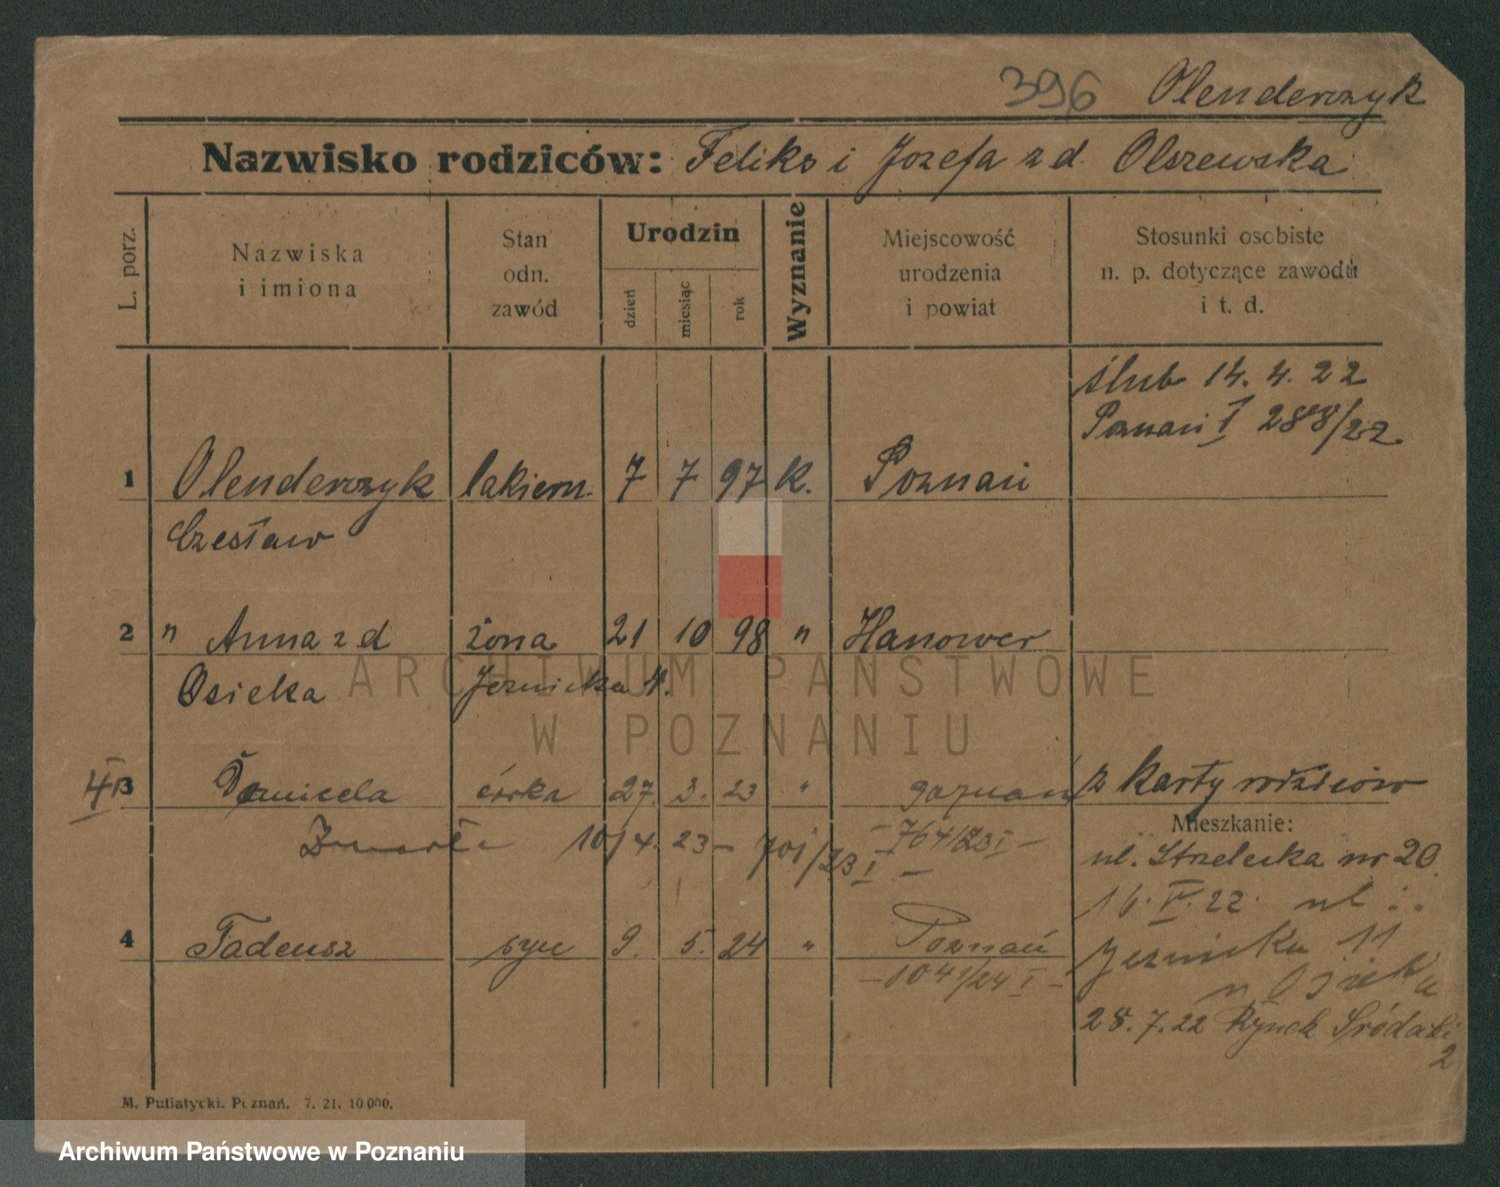 396 Olenderczyk
Nazwisko rodziców: Feliks i Józefa z d. Olszewska
L. porz.
Nazwiska
i imiona
Stan
odn.
zawód
Urodzin
dzień
miesiąc
rok
Wyznanie
Miejscowość
urodzenia
i powiat
Stosunki osobiste
n. p. dotyczące zawodu
i t. d.
ślub 14. 4. 22
Poznań I 288/22
1 Olenderczyk lakiern. 7 7 97 k. Poznań
Czesław
2 " Anna z d żona 21 10 98 " Hanower
Osicka Jeżnicka 11.
3 córka 27. 3. 23 " Poznań z karty rodziców
Zmarła 10/4. 23 - 701/23 I - - 764/23 I -
Mieszkanie:
ul. Strzelecka nr 20.
16. IV. 22. ul.
4 Tadeusz syn 9. 5. 24 " Poznań
- 1041/24 I -
Jeżnicka 11
u Osicka
28. 7. 22 Rynek Śródecki
2
M. Putiatycki. Poznań. 7. 21. 10 000.
ARCHIWUM PAŃSTWOWE
W POZNANIU
Archiwum Państwowe w Poznaniu